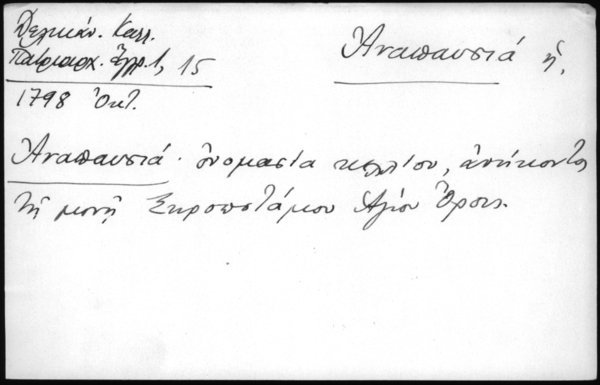 Δελικάν. Καλλ.
Πατριαρχ. Ἔγγρ. 1, 15
1798 Ὀκτ.
Ἀναπαυσιά ἡ,
Ἀναπαυσιά · ὀνομασία κελλίου, ἀνήκοντος
τῇ μονῇ Ξηροποτάμου Ἁγίου Ὄρους.